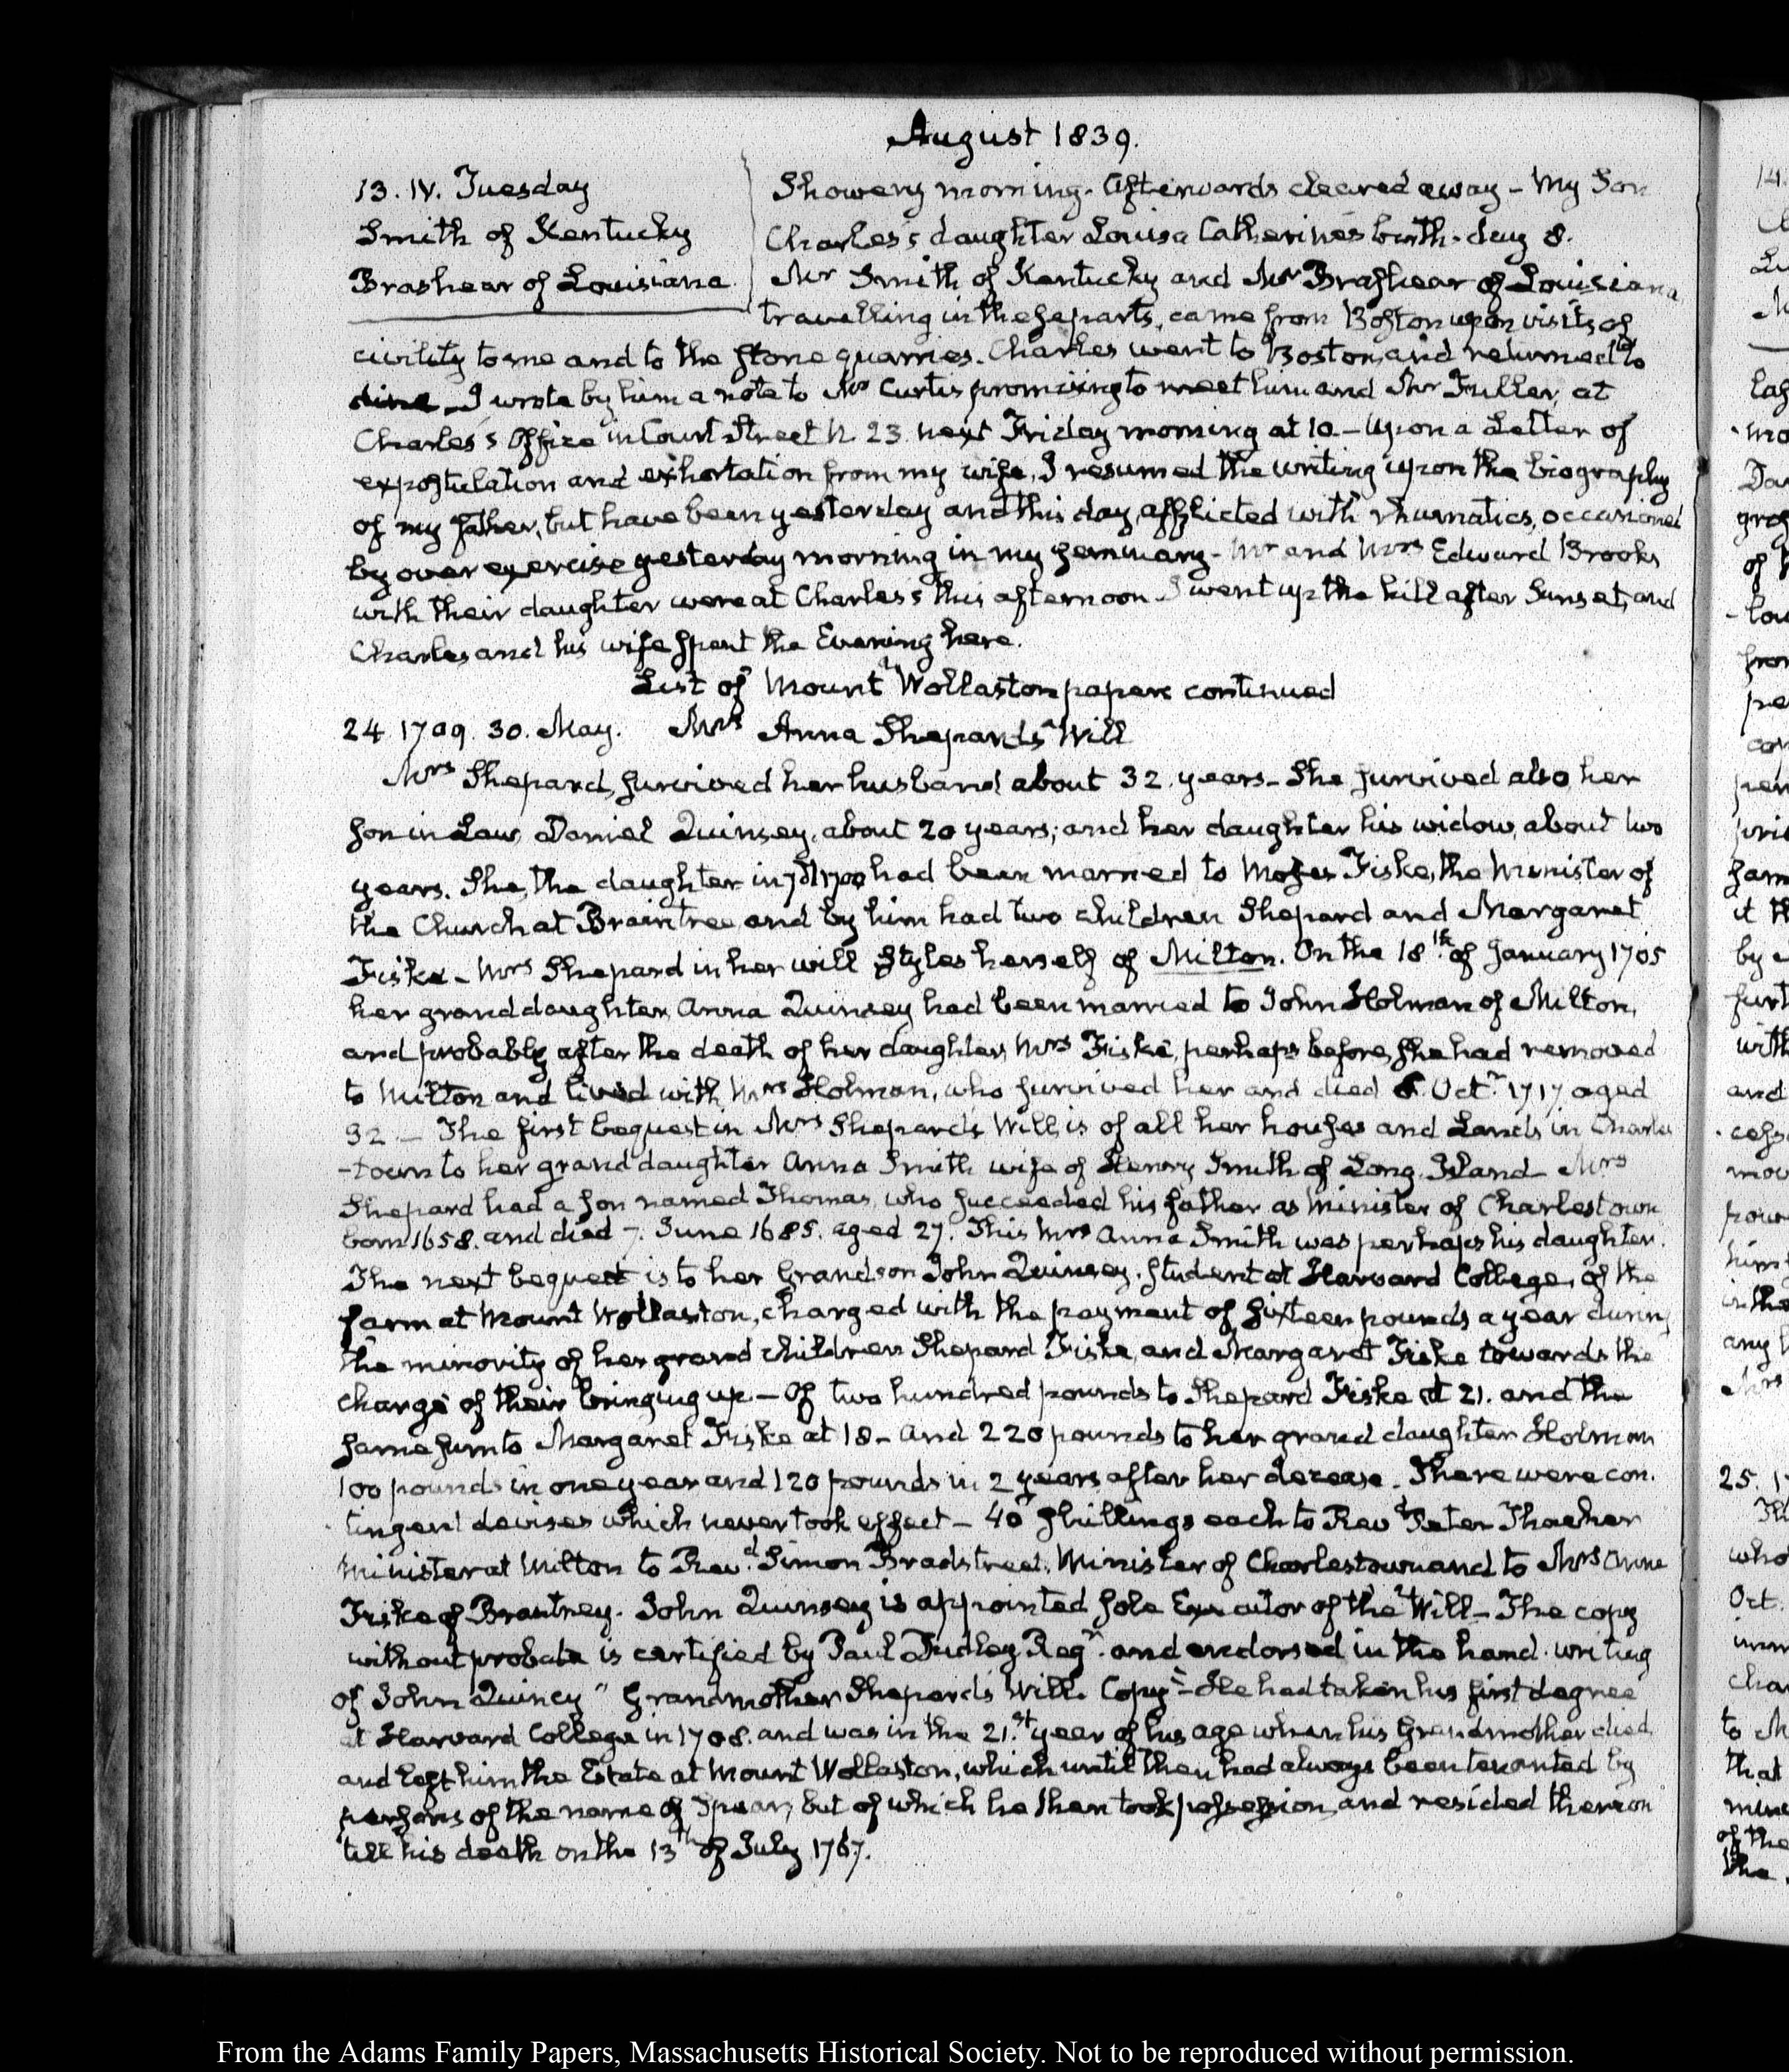 August 1839.
13. IV. Tuesday
Smith of Kentucky
Brashear of Louisiana
Showery morning. Afterwards cleared away – My Son
Charles's daughter Louisa Catherine's birth-day 8.
Mr Smith of Kentucky and Mr Brashear of Louisiana
travelling in these parts, came from Boston upon visits of
civility to me and to the stone quarries. Charles went to Boston, and returned to
dine – I wrote by him a note to Mr Curtis promising to meet him and Mr Fuller, at
Charles's Office in Court Street N. 23 next Friday morning at 10 – Upon a Letter of
expostulation and exhortation from my wife, I resumed the writing upon the biography
of my father, but have been yesterday and this day, afflicted with rhumatics, occasioned
by over exercise yesterday morning in my seminary – Mr and Mrs Edward Brooks
with their daughter were at Charles's this afternoon I went up the hill after Sunset, and
Charles and his wife spent the Evening here.
List of Mount Wollaston papers continued
24. 1709. 30. May. Mrs Anna Shepard's Will
Mrs Shepard, survived her husband about 32. years – She survived also her
son in Law Daniel Quinsey, about 20 years; and her daughter his widow, about two
years. She, the daughter in 1700 had been married to Moses Fiske, the Minister of
the Church at Braintree and by him had two children Shepard and Margaret
Fiske – Mrs Shepard in her will styles herself of Milton. On the 18th of January 1705
her grand daughter, Anna Quinsey had been married to John Holman of Milton,
and probably after the death of her daughter, Mrs Fiske, perhaps before, she had removed
to Milton and lived with Mrs Holman, who survived her and died Octr 1717 aged
32 – The first bequest in Mrs Shepard's Will, is of all her houses and Lands in Charles
-town to her grand daughter Anna Smith wife of Henry Smith of Long Island – Mrs
Shepard had a son named Thomas, who succeeded his father as Minister of Charlestown
born 1658. and died 7. June 1685. aged 27. This Mrs Anna Smith was perhaps his daughter.
The next bequest is to her Grandson John Quinsey, student at Harvard College, of the
farm at Mount Wollaston, charged with the payment of sixteen pounds a year during
the minority of her grand children Shepard Fiske, and Margaret Fiske towards the
charge of their bringing up – Of two hundred pounds to Shepard Fiske at 21. and the
same sum to Margaret Fiske at 18 – and 220 pounds to her grand daughter Holman
100 pounds in one year and 120 pounds in 2 years after her decease. There were con-
tingent devises which never took effect – 40 shillings each to Revd Peter Thacher
Minister at Milton to Revd Simon Bradstreet, Minister of Charlestown and to Mrs Anne
Fiske of Brantrey. John Quinsey is appointed sole Executor of the Will – The copy
without probate is certified by Paul Dudley Regr. and endorsed in the hand-writing
of John Quincy "Grandmother Shepard's Will. Copy" – He had taken his first degree
at Harvard College in 1708. and was in the 21st year of his age when his Grandmother died
and left him the Estate at Mount Wollaston, which until then had always been tenanted by
persons of the name of Spear, but of which he then took possession, and resided thereon
till his death on the 13th of July 1767.
From the Adams Family Papers, Massachusetts Historical Society. Not to be reproduced without permission.